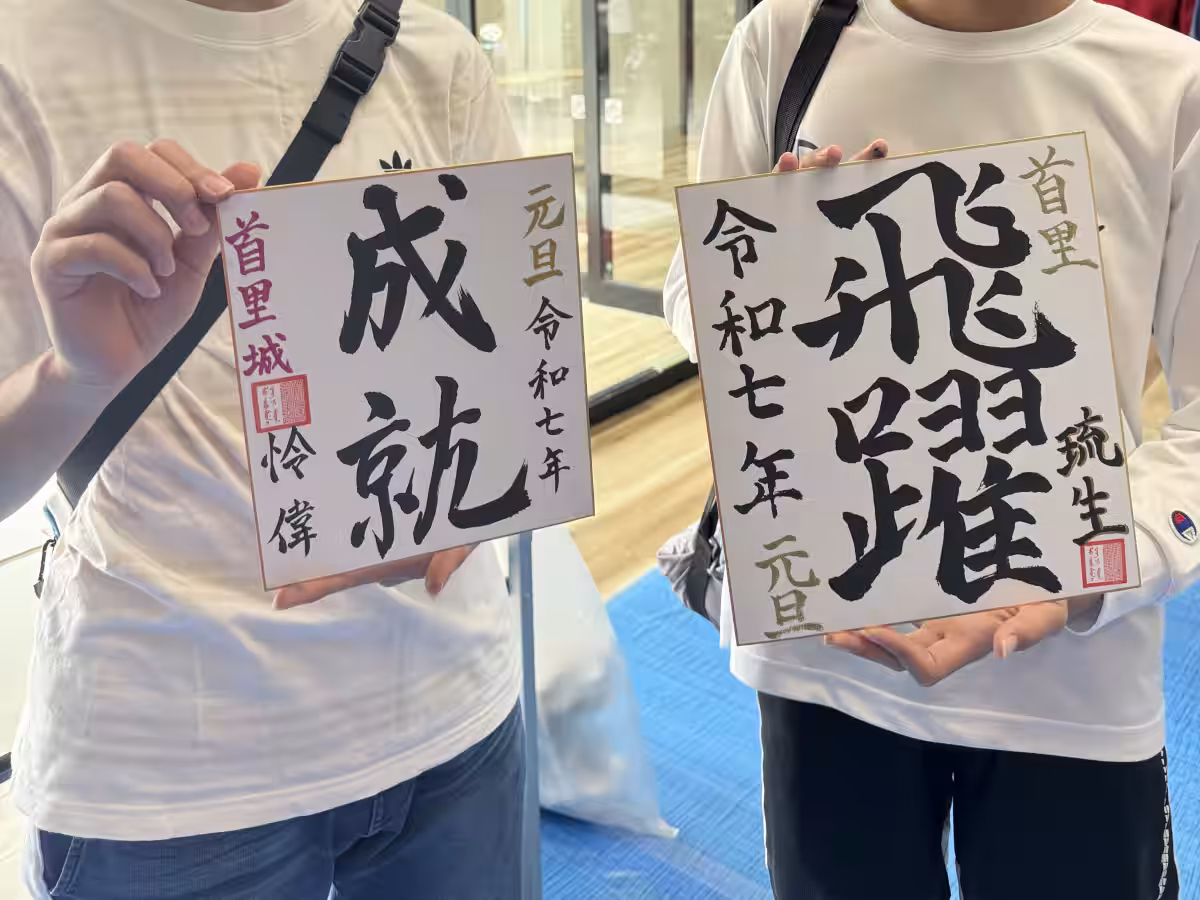 元旦
令和七年
成就
首里城
怜偉
首里
琉生
飛躍
令和七年
元旦